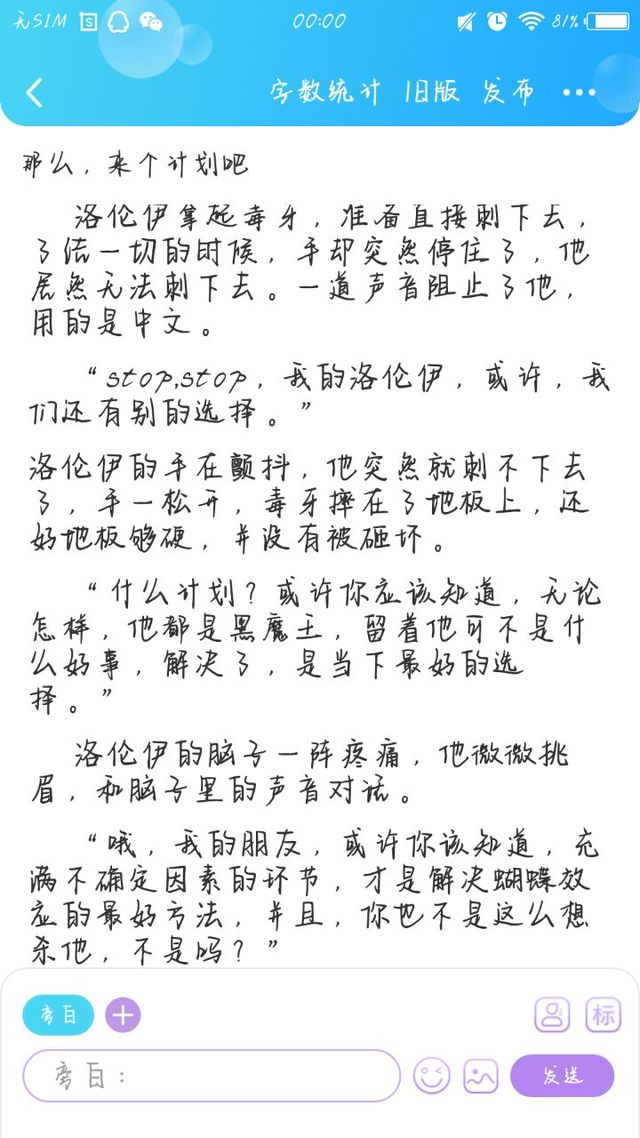 无SIM 00:00 81%
字数统计 旧版 发布
那么，来个计划吧
洛伦伊拿起毒牙，准备直接刺下去，
了结一切的时候，手却突然停住了，他
居然无法刺下去。一道声音阻止了他，
用的是中文。
“stop,stop，我的洛伦伊，或许，我
们还有别的选择。”
洛伦伊的手在颤抖，他突然就刺不下去
了，手一松开，毒牙摔在了地板上，还
好地板够硬，并没有被砸坏。
“什么计划？或许你应该知道，无论
怎样，他都是黑魔王，留着他可不是什
么好事，解决了，是当下最好的选
择。”
洛伦伊的脑子一阵疼痛，他微微挑
眉，和脑子里的声音对话。
“哦，我的朋友，或许你该知道，充
满不确定因素的环节，才是解决蝴蝶效
应的最好方法，并且，你也不是这么想
杀他，不是吗？”
旁白
标
旁白：
发送